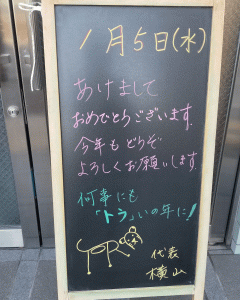 1月5日(水)
あけまして
おめでとうございます.
今年もどうぞ
よろしくお願いします.
何事にも
「トラ」いの年に!
代表
横山